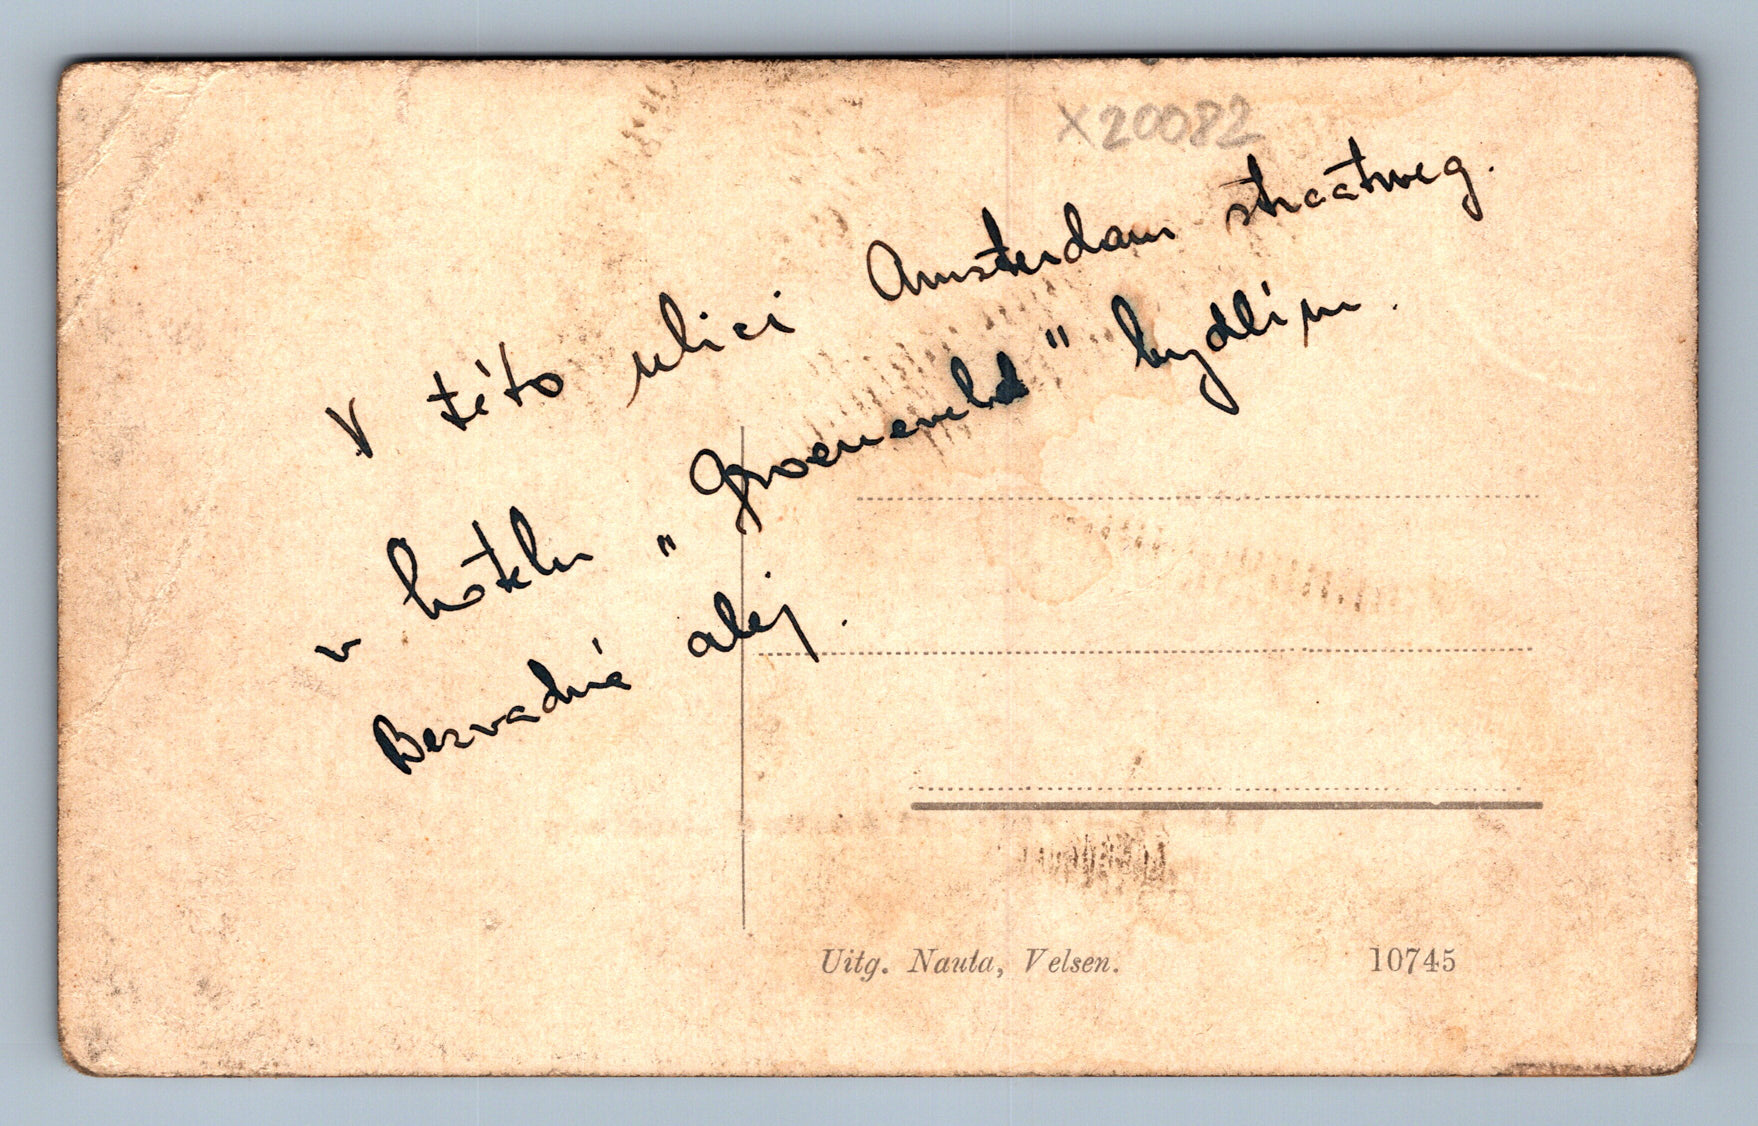 X20082
V této ulici Amsterdam straatweg.
v hotelu „Groeneveld" bydlím.
Bezvadná alej.
Uitg. Nauta, Velsen. 10745